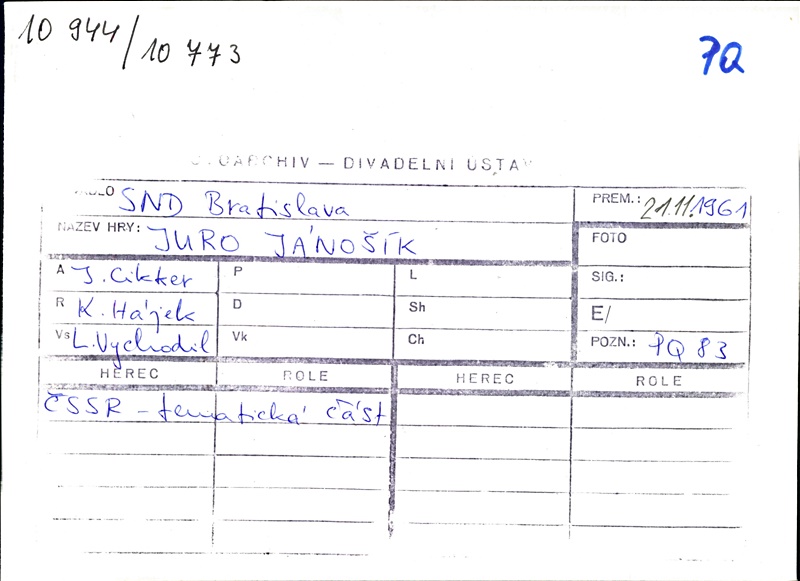 10 944/10 773
7Q
OARCHIV — DIVADELNÍ ÚSTAV
SND Bratislava
PREM.: 21.11.1961
NÁZEV HRY: JURO JÁNOŠÍK
FOTO
A J. Cikker P L SIG.:
R K. Hájek D Sh E/
Vs L. Vychodil Vk Ch POZN.: PQ 83
HEREC ROLE HEREC ROLE
ČSSR – tematická část